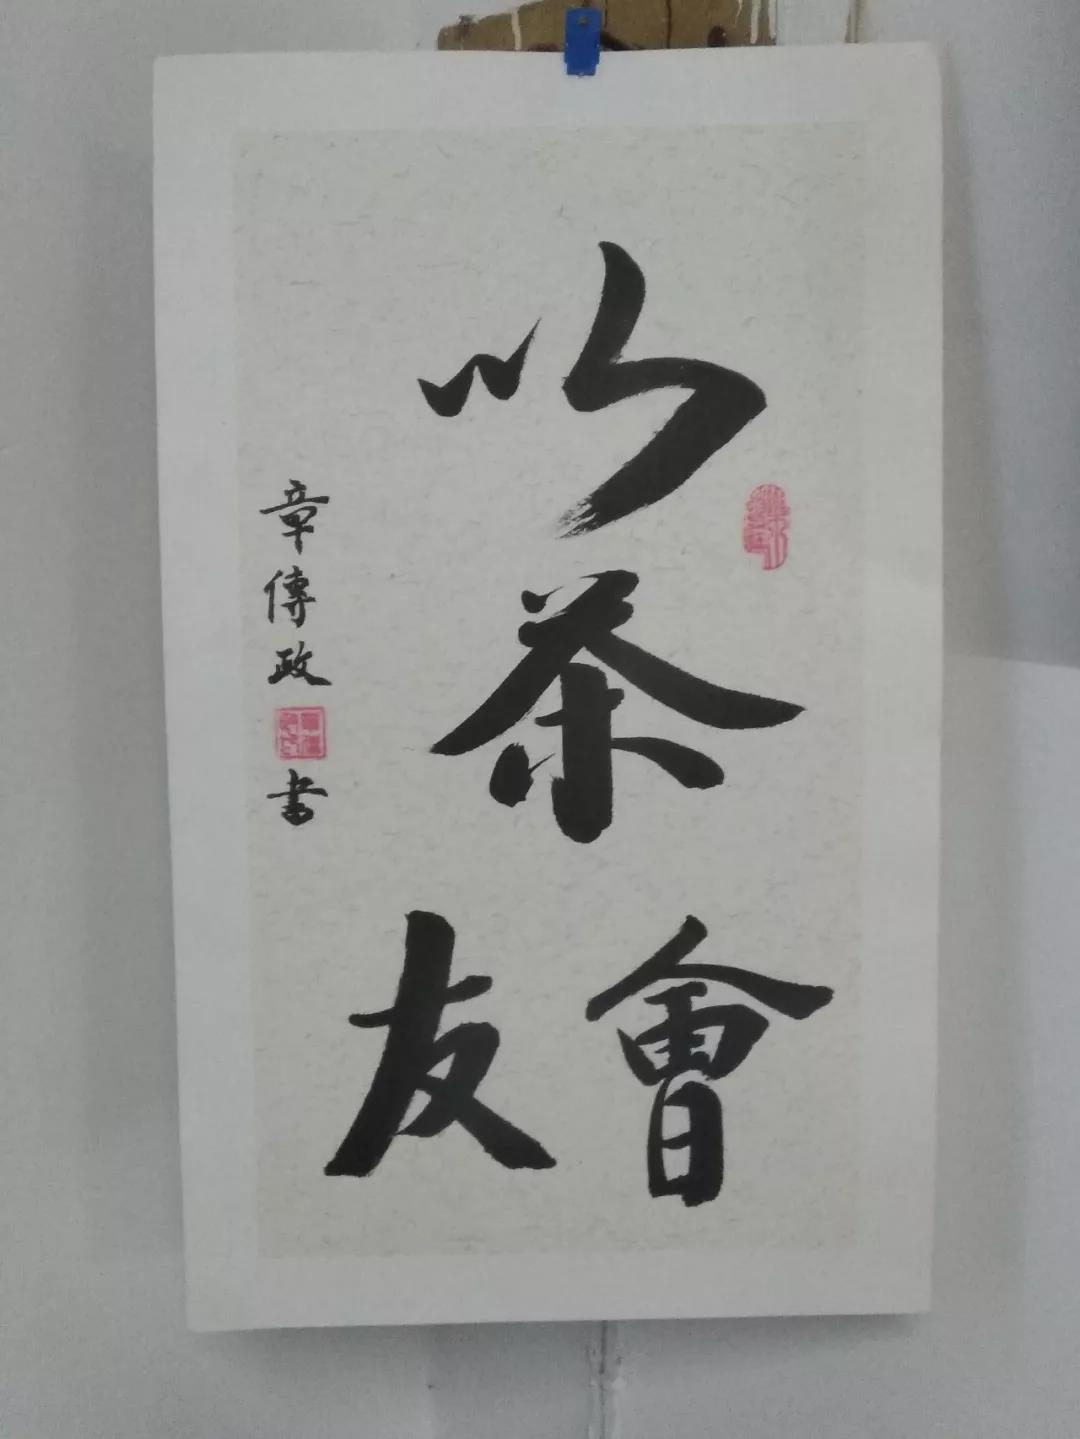 以茶會友
章傳政書